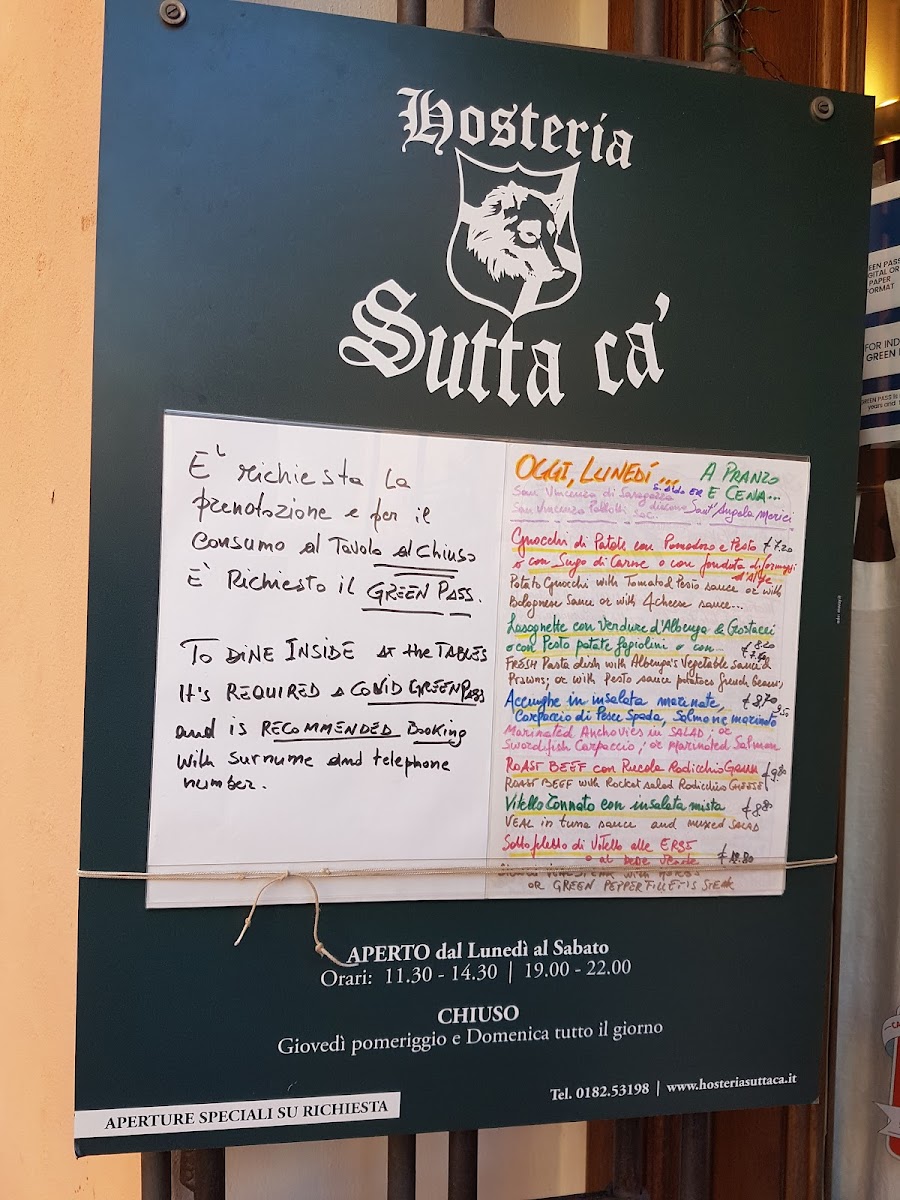 Hosteria
Sutta ca'
E' richiesta la
prenotazione e per il
consumo al Tavolo al Chiuso
E' Richiesto il GREEN PASS.
To DINE INSIDE AT the TABLES
It's REQUIRED a COVID GREEN PASS
and is RECOMMENDED Booking
with surnume and telephone
number.
OGGI, LUNEDÍ...
A PRANZO
E CENA...
San Vincenzo di Saragozza
diacono Sant'Angela Merici
San Vincenzo Pallotti sac..
Gnocchi di Patate con Pomodoro e Pesto € 7.20
o con Sugo di Carne o con fonduta di formaggi
d'Alpe
Potato Gnocchi with Tomato & Pesto sauce or with
Bolognese Sauce or with 4 cheese sauce...
Lasagnette con Verdure d'Albenga & Gostacci
€ 8.20
o con Pesto patate fagiolini o con...
FRESH Pasta dish with Albenga's Vegetable sauce &
Prawns; or with pesto sauce potatoes french beans,
Acciughe in insalata marinate, € 8.70
Carpaccio di Pesce Spada, Salmone marinato 9.50
Marinated Anchovies in SALAD; or
Swordfish Carpaccio; or Marinated Salmon
ROAST BEEF con Rucola Radicchio Grana € 9.80
ROAST BEEF with Rocket salad Radicchio CHEESE
Vitello Tonnato con insalata mista € 8.80
VEAL in tuna sauce and mixed SALAD
Sottofiletto di Vitello alle ERBE
o al PEPE VERDE
OR GREEN PEPPER FILLET IS STEAK
APERTO dal Lunedì al Sabato
Orari: 11.30 - 14.30 | 19.00 - 22.00
CHIUSO
Giovedì pomeriggio e Domenica tutto il giorno
Tel. 0182.53198 | www.hosteriasuttaca.it
APERTURE SPECIALI SU RICHIESTA
EEN PASS
GITAL OR
PAPER
FORMAT
FOR IND
GREEN
GREEN PASS N
years and